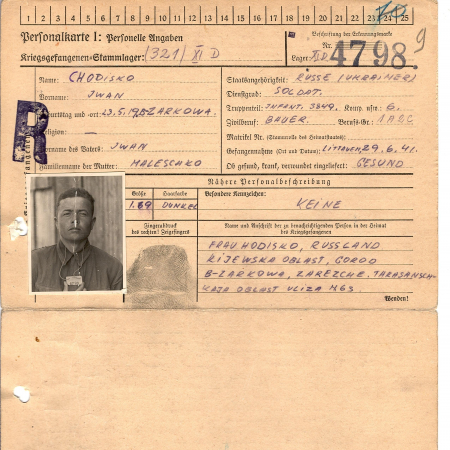 1 2 3 4 5 6 7 8 9 10 11 12 13 14 15 16 17 18 19 20 21 22 23 24 25
Personalkarte I: Personelle Angaben
Beschriftung der Erkennungsmarke
9
Kriegsgefangenen-Stammlager: (321) XI D
Nr. 4798
Lager: XI D
Name: CHODISKO
Staatsangehörigkeit: RUSSE (UKRAINER)
Vorname: IWAN
Dienstgrad: SOLDAT.
Geburtstag und -ort: ZARKOWA.
Truppenteil: INFANT. 3849. Komp. usw.: 6.
Religion: —
Zivilberuf: BAUER. Berufs-Gr.:
Vorname des Vaters: IWAN
Matrikel Nr. (Stammrolle des Heimatstaates):
Gefangennahme (Ort und Datum): LITTAUEN, 29.6.41.
Familienname der Mutter: MALESCHKO
Ob gesund, krank, verwundet eingeliefert: GESUND
Nähere Personalbeschreibung
Größe
Haarfarbe
Besondere Kennzeichen:
1.69
DUNKEL
KEINE
Fingerabdruck
des rechten! Zeigefingers
Name und Anschrift der zu benachrichtigenden Person in der Heimat
des Kriegsgefangenen
FRAU HODISKO, RUSSLAND
KIJEWSKA OBLAST, GOROD
B-ZARKOWA, ZAREZCHE. TARASANSCH-
KAJA OBLAST ULIZA N63
Wenden!